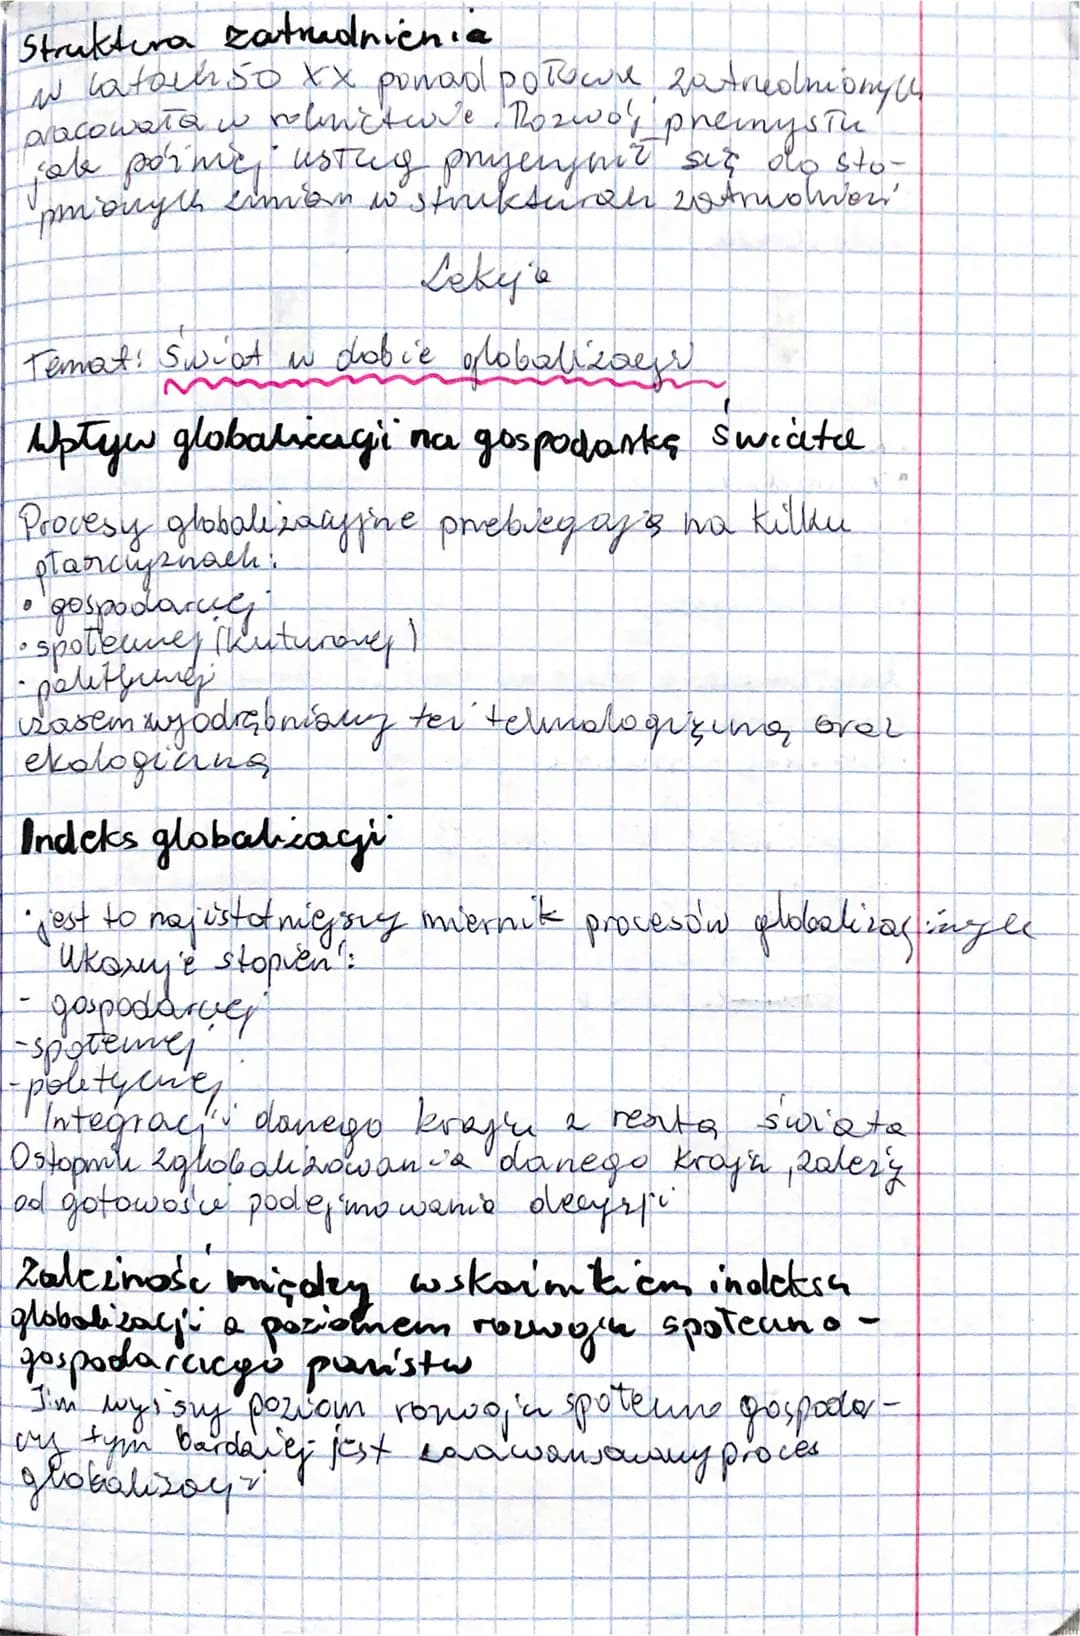 Struktura zatrudnienia
w latach 50 XX ponad połowa zatrudnionych
pracowała w rolnictwie. Rozwój przemysłu
jak później usług przyczynił się do sto-
pniowych zmian w strukturach zatrudnień
Lekcja
Temat: Świat w dobie globalizacji
Wpływ globalizacji na gospodarkę świata
Procesy globalizacyjne przebiegają na kilku
płaszczyznach:
• gospodarczej
• społecznej (kuturowej)
• politycznej
czasem wyodrębniamy też technologiczną oraz
ekologiczną
Indeks globalizacji
• jest to najistotniejszy miernik procesów globalizacyjnych
Ukazuje stopień:
- gospodarczej
- społecznej
- politycznej
Integracji danego kraju z resztą świata
O stopniu zglobalizowania danego kraju, zależy
od gotowości podejmowania decyzji
Zależność między wskaźnikiem indeksu
globalizacji a poziomem rozwoju społeczno -
gospodarczego państw
Im wyższy poziom rozwoju społeczno gospodar-
czy tym bardziej jest zaawansowany proces
globalizacji